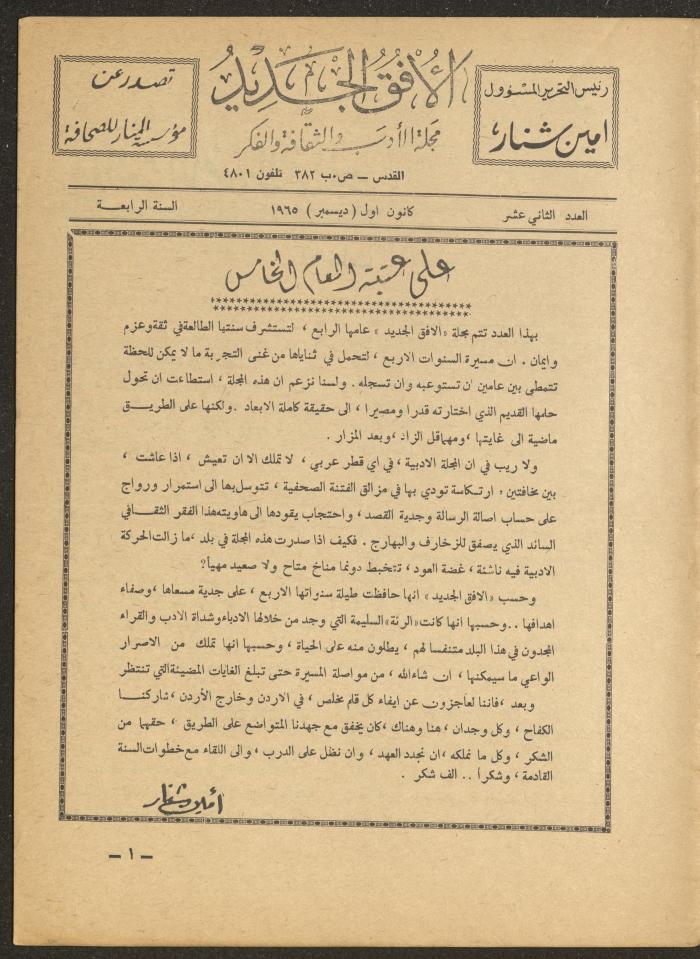 رئيس التحرير المسؤول
امين شنار
الأفق الجديد
مجلة الأدب والثقافة والفكر
تصدر عن
مؤسسة المنار للصحافة
القدس – ص٠ب ٣٨٢ تلفون ٤٨٠١
العدد الثاني عشر
كانون اول ( ديسمبر ) ١٩٦٥
السنة الرابعة
على عتبة العام الخامس
بهذا العدد تتم مجلة «الافق الجديد» عامها الرابع ، لتستشرف سنتها الطالعة في ثقة وعزم
وايمان . ان مسيرة السنوات الاربع ، لتحمل في ثناياها من غنى التجربة ما لا يمكن للحظة
تتمطى بين عامين ان تستوعبه وان تسجله . ولسنا نزعم ان هذه المجلة ، استطاعت ان تحول
حلمها القديم الذي اختارته قدرا ومصيرا ، الى حقيقة كاملة الابعاد .ولكنها على الطريق
ماضية الى غايتها ، ومهما قل الزاد ،وبعد المزار .
ولا ريب في ان المجلة الادبية ، في اي قطر عربي ، لا تملك الا ان تعيش ، اذا عاشت ،
بين مخافتين : ارتكاسة تودي بها في مزالق الفتنة الصحفية ، تتوسل بها الى استمرار ورواج
على حساب اصالة الرسالة وجدية القصد ، واحتجاب يقودها الى هاويته هذا الفقر الثقافي
السائد الذي يصفق للزخارف والبهارج . فكيف اذا صدرت هذه المجلة في بلد ،ما زالت الحركة
الادبية فيه ناشئة ، غضة العود ، تتخبط دونما مناخ متاح ولا صعيد مهيأ؟
وحسب «الافق الجديد» انها حافظت طيلة سنواتها الاربع ، على جدية مسعاها ،وصفاء
اهدافها .. وحسبها انها كانت«الرئة»السليمة التي وجد من خلالها الادباء وشداة الادب والقراء
المجدون في هذا البلد متنفسا لهم ، يطلون منه على الحياة ، وحسبها انها تملك من الاصرار
الواعي ما سيمكنها ، ان شاءالله ، من مواصلة المسيرة حتى تبلغ الغايات المضيئة التي تنتظر
وبعد ،فاننا لعاجزون عن ايفاء كل قلم مخلص ، في الاردن وخارج الأردن ،شاركنا
الكفاح ، وكل وجدان ، هنا وهناك ،كان يخفق مع جهدنا المتواضع على الطريق ، حقهما من
الشكر ، وكل ما نملكه ،ان نجدد العهد ، وان نظل على الدرب ، والى اللقاء مع خطوات السنة
القادمة ، وشكرا .. الف شكر .
أمين شنار
– ١ –